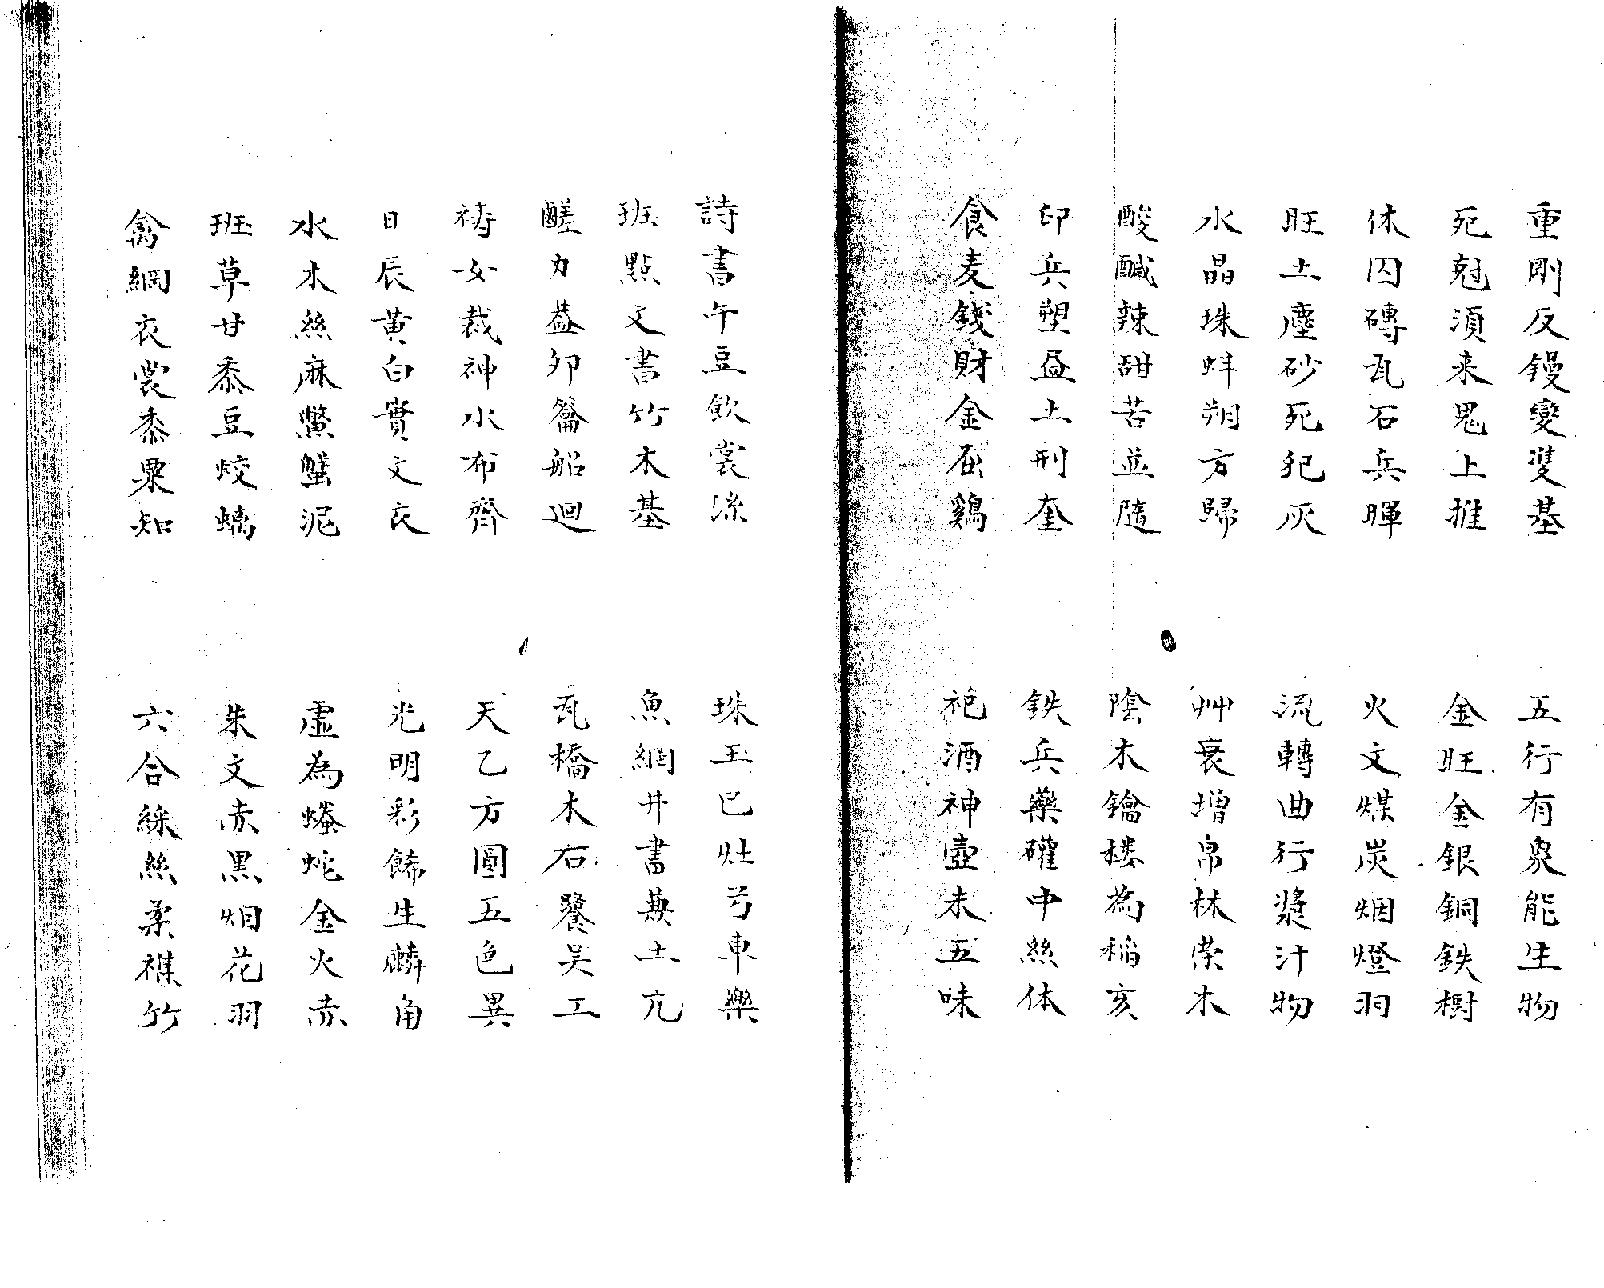 重剛反鏝變雙基　五行有象能生物
死尅湏来鬼上推　金旺金銀銅鉄樹
休囚磚瓦石兵暉　火文煤炭烟燈羽
旺土塵砂死犯灰　流轉曲行漿汁物
水晶珠蚌朔方歸　艸衰增帛林荣木
酸醎辣甜苦並隨　陰木鑰楼為稲亥
印兵塑盈土刑奎　鉄兵藥礶中絲体
食麦錢財金酉鷄　祀酒神壺未五味
詩書午豆飲裳流　珠玉巳灶弓車樂
班點文書竹木基　魚網井書兼土亢
醝力盖夘籥船迴　瓦橋木石饗吴工
祷女裁神水布齊　天乙方圓五色異
日辰黄白實文衣　光明彩餙生麟角
水木絲麻鱉蟹泥　虚為蟠蛇金火赤
班草甘黍豆蛟螭　朱文赤黑烟花羽
禽網衣裳黍粟知　六合綵絲柔裸竹